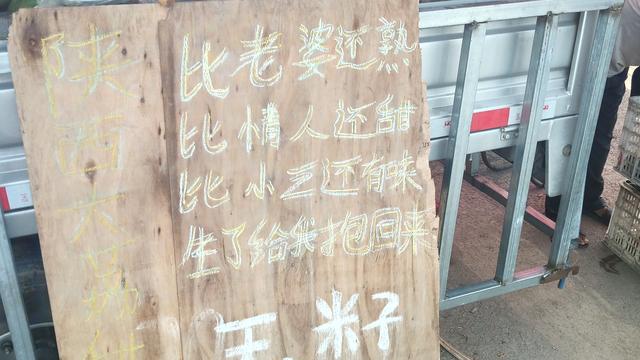 陕西大荔
比老婆还熟
比情人还甜
比小三还有味
生了给我抱回来
王、米子